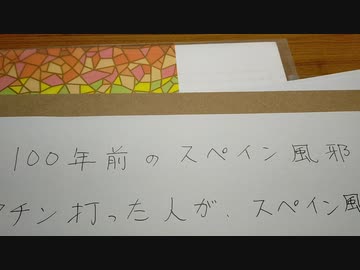 100年前のスペイン風邪
クチン打った人が、スペイン風